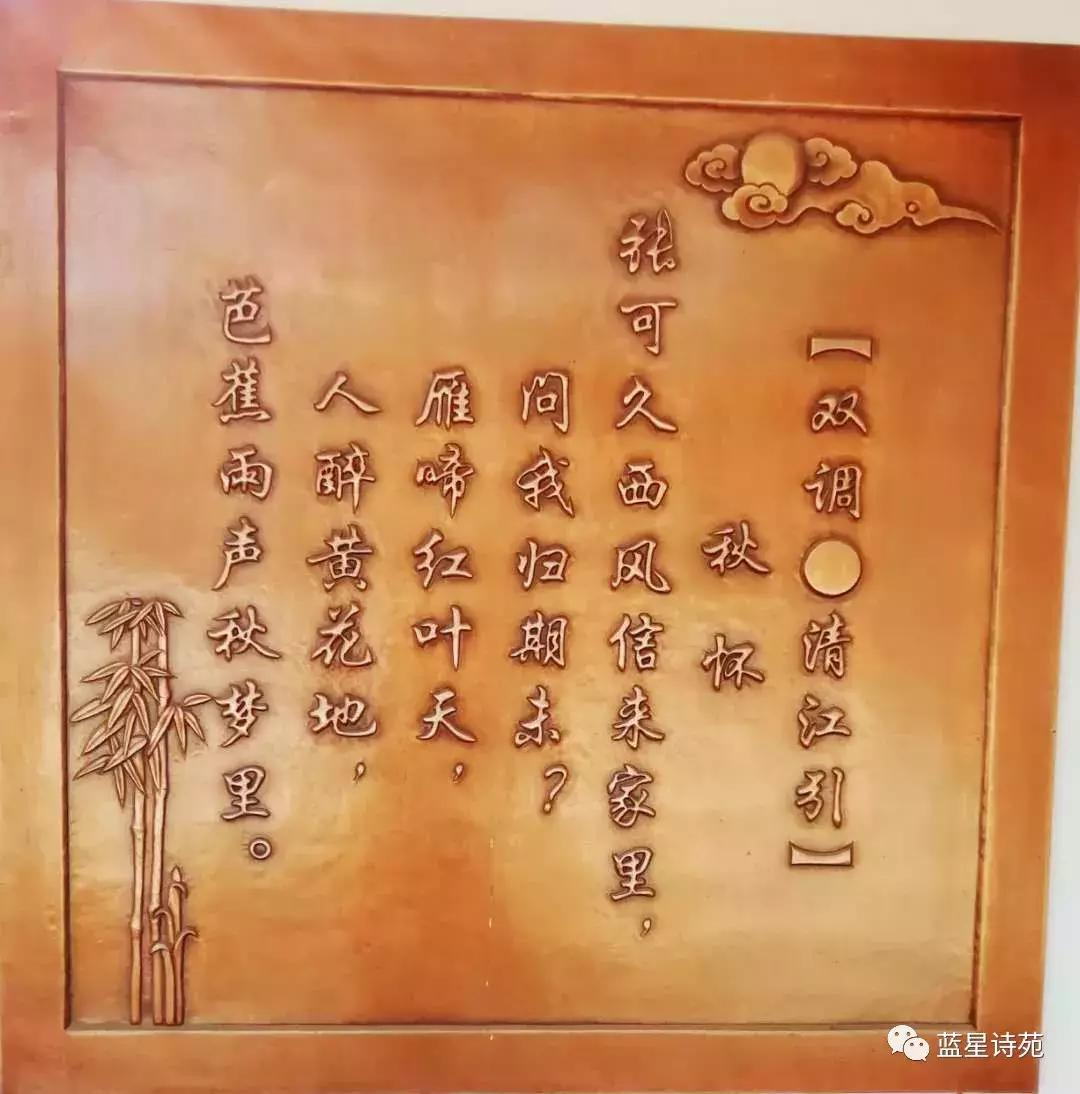 【双调●清江引】
秋怀
张可久西风信来家里，
问我归期未？
雁啼红叶天，
人醉黄花地，
芭蕉雨声秋梦里。
蓝星诗苑